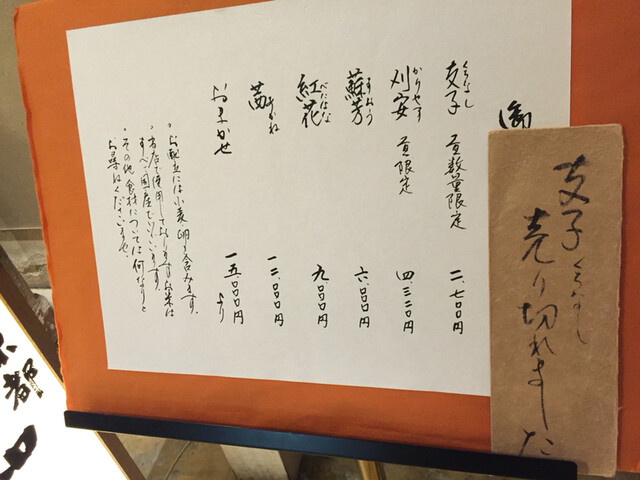 御
支子 くちなし 昼数量限定 二、七〇〇円
刈安 かりやす 昼限定 四、三二〇円
蘇芳 すおう 六、〇〇〇円
紅花 べにばな 九、〇〇〇円
茜 あかね 一二、〇〇〇円
おまかせ 一五、〇〇〇円より
・お献立には小麦・卵を含みます。
・当店で使用しておりますお米は
すべて国産でございます。
・その他食材については何なりと
お尋ねくださいませ。
支子 くちなし
売り切れました
京都